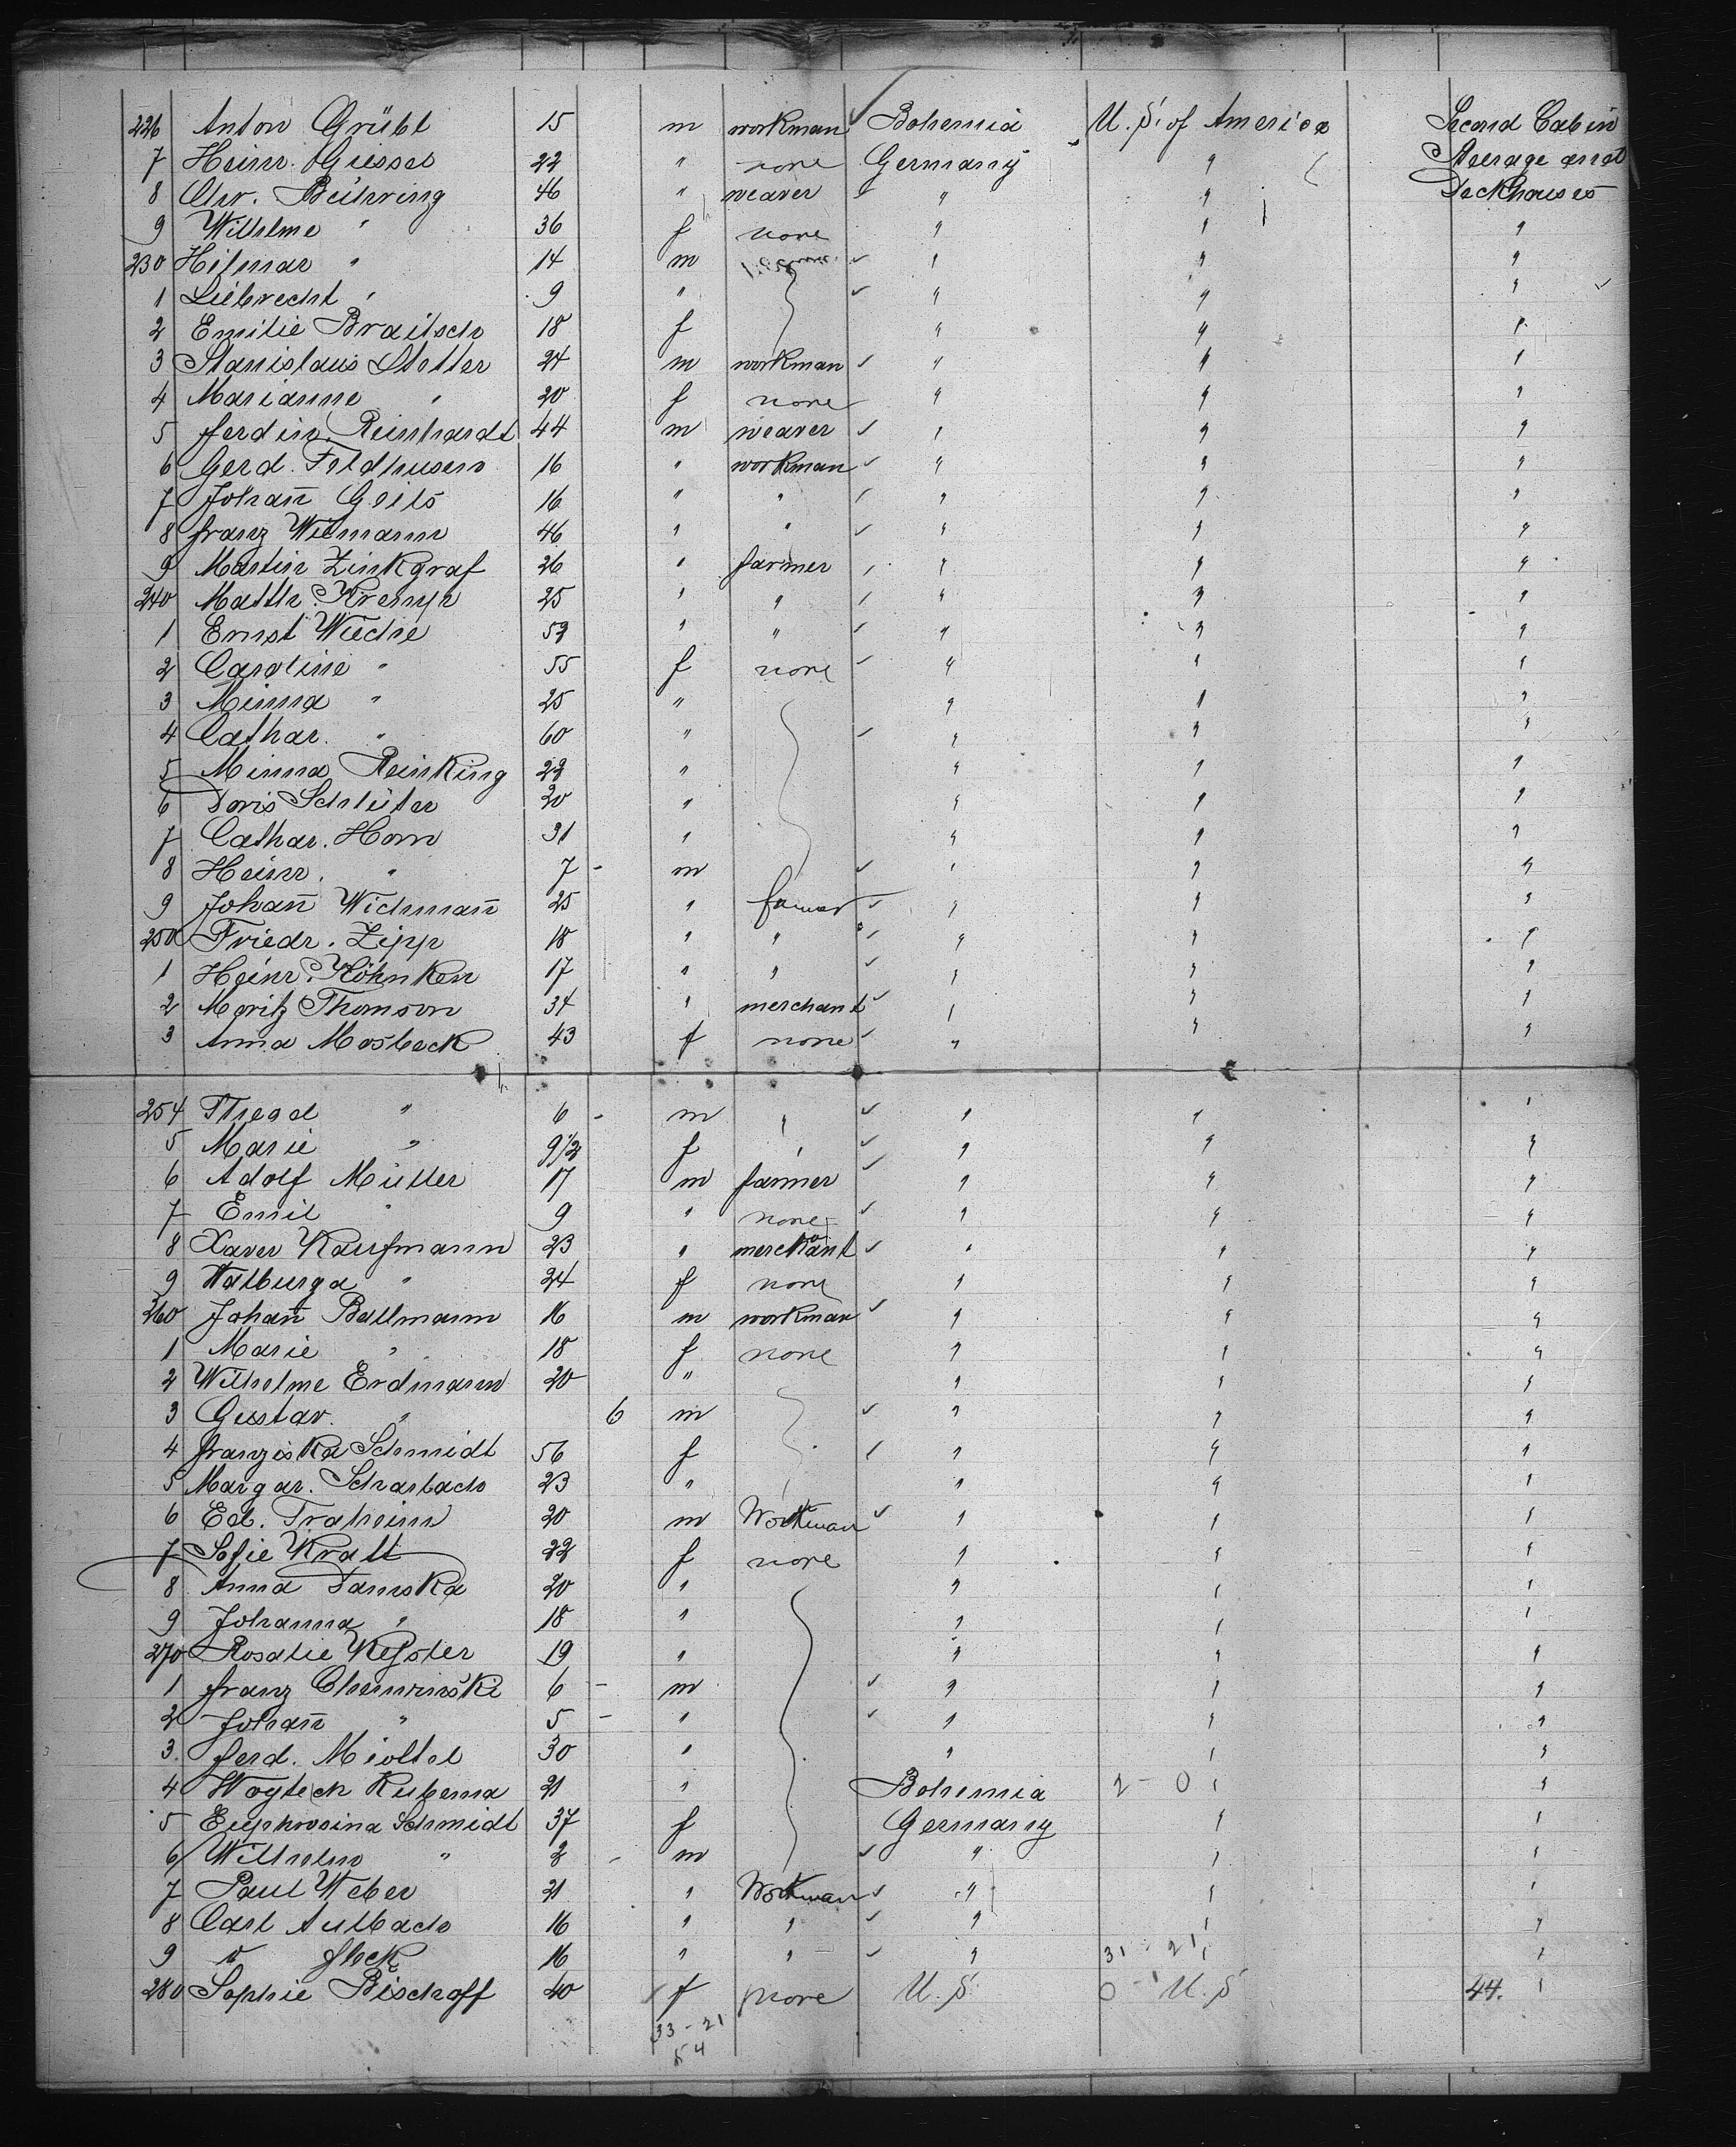 226 Anton Grübl 15 m workman Bohemia U. S. of America Second Cabin
7 Heinr. Giessel 22 " none Germany " Steerage and
8 Chr. Bühring 46 " weaver " " Deckhouses
9 Wilhelme " 36 f none " " "
230 Hilmar " 14 m " " "
1 Liebrecht " 9 " " " "
2 Emilie Braitsch 18 f " " "
3 Stanislaus Stetter 24 m workman " " "
4 Marianne " 20 f none " " "
5 Ferdin. Reinhardt 44 m weaver " " "
6 Gerd. Feldhusen 16 " workman " " "
7 Johañ Geils 16 " " " " "
8 Franz Wilmann 46 " " " " "
9 Martin Zinkgraf 26 " farmer " " "
240 Matth. 25 " " " " "
1 Ernst Wieche 52 " " " " "
2 Caroline " 55 f none " " "
3 Minna " 25 " " " "
4 Cathar. " 60 " " " "
5 Minna Reinking 22 " " " "
6 Doris Schlüter 20 " " " "
7 Cathar. Horn 31 " " " "
8 Heinr. " 7 - m " " "
9 Johañ Wichmañ 25 " farmer " " "
250 Friedr. Zipp 18 " " " " "
1 Heinr. Köhnken 17 " " " " "
2 Moritz Thomson 34 " merchant " " "
3 Anna Mosbeck 43 f none " " "
254 " 6 - m " " " "
5 Marie " 9½ f " " " "
6 Adolf Müller 17 m farmer " " "
7 Emil " 9 " none " " "
8 Xaver Kaufmann 23 " merchant " " "
9 Walburga " 24 f none " " "
260 Johañ Ballmann 16 m workman " " "
1 Marie " 18 f none " " "
2 Wilhelme Erdmann 20 " " " "
3 Gustav. " 6 m " " "
4 Franziska Schmidt 56 f " " "
5 Margar. Scharbach 23 " " " "
6 Ed. Traheim 20 m Workman " " "
7 Sofie Kratt 22 f none " " "
8 Anna Tamska 20 " " " "
9 Johanna " 18 " " " "
270 Rosalie 19 " " " "
1 Franz 6 - m " " "
2 Johañ " 5 - " " " "
3. Ferd. Mioltel 30 " " " "
4 Woyteck Rubema 21 " Bohemia 2 - 0 " "
5 Euphrosina Schmidt 37 f Germany " "
6 Wilhelm " 2 - m " " "
7 Paul Weber 21 " Workman " " "
8 Carl Aulbach 16 " " " " "
9 " Fleck 16 " " " 31 - 21 " "
280 Sophie Bischoff 40 f none U. S. 0 - 1 U. S 44. "
33 - 21
54